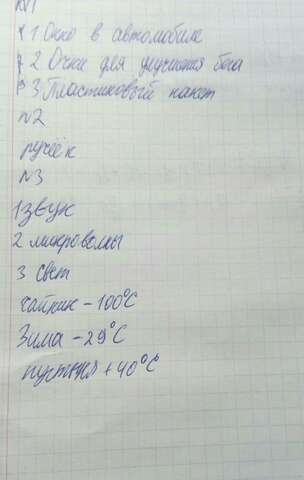 №1
1 Окно в автомобиле
2 Очки для улучшения бога
3 Пластиковый пакет
№2
ручеёк
№3
1 звук
2 микроволны
3 свет
чайник - 100°C
Зима - 29°C
пустыня + 40°C